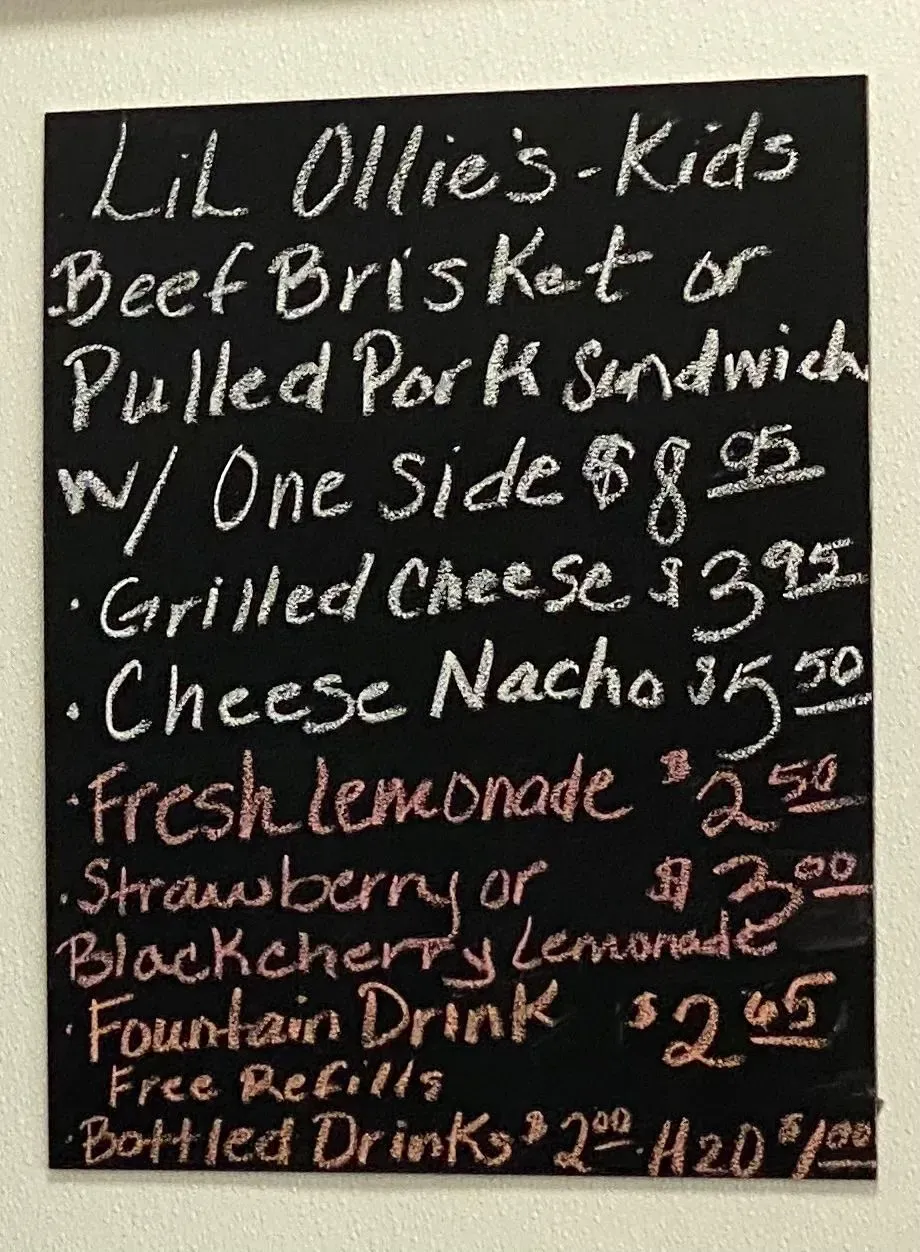 LiL Ollie's - Kids
Beef Brisket or
Pulled Pork Sandwich
w/ One Side $8 95
· Grilled Cheese $3 95
· Cheese Nacho $5 50
· Fresh Lemonade $2 50
· Strawberry or $3 00
Blackcherry Lemonade
· Fountain Drink $2 65
Free Refills
· Bottled Drinks $2 00 H2O $1 00